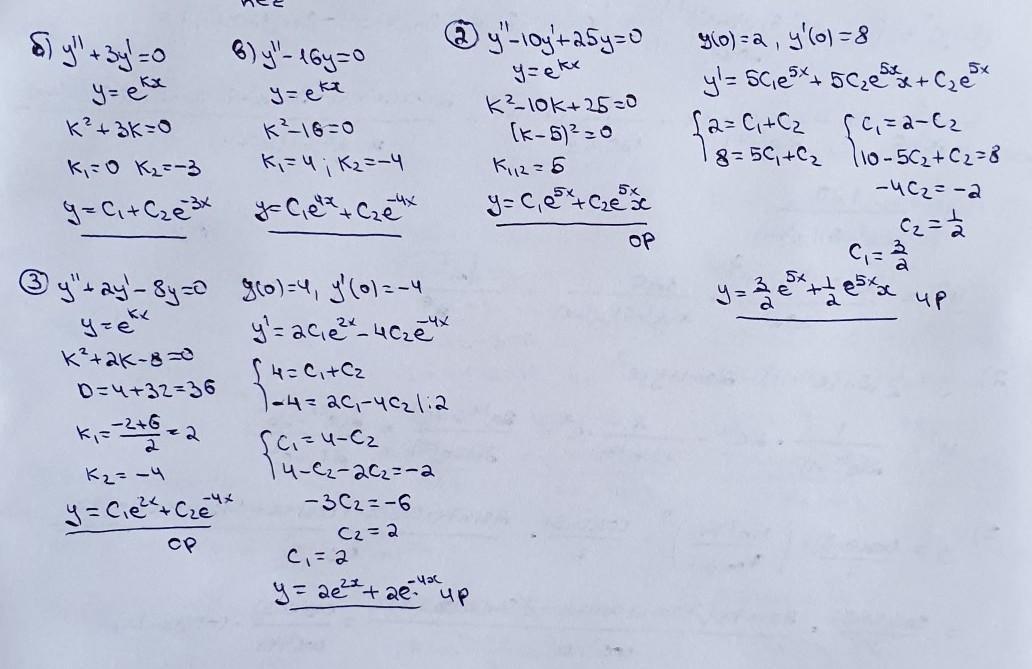 б) y'' + 3y' = 0
y = e^{kx}
k² + 3k = 0
k₁ = 0 k₂ = -3
y = C₁ + C₂e^{-3x}
в) y'' - 16y = 0
y = e^{kx}
k² - 16 = 0
k₁ = 4; k₂ = -4
y = C₁e^{4x} + C₂e^{-4x}
② y'' - 10y' + 25y = 0
y = e^{kx}
k² - 10k + 25 = 0
(k - 5)² = 0
k₁,₂ = 5
y = C₁e^{5x} + C₂e^{5x}x
ОР
y(0) = 2, y'(0) = 8
y' = 5C₁e^{5x} + 5C₂e^{5x}x + C₂e^{5x}
{ 2 = C₁ + C₂ { C₁ = 2 - C₂
8 = 5C₁ + C₂ 10 - 5C₂ + C₂ = 8
-4C₂ = -2
C₂ = 1/2
C₁ = 3/2
y = 3/2 e^{5x} + 1/2 e^{5x}x ЧР
③ y'' + 2y' - 8y = 0
y = e^{kx}
k² + 2k - 8 = 0
D = 4 + 32 = 36
k₁ = (-2+6)/2 = 2
k₂ = -4
y = C₁e^{2x} + C₂e^{-4x}
ОР
y(0) = 4, y'(0) = -4
y' = 2C₁e^{2x} - 4C₂e^{-4x}
{ 4 = C₁ + C₂
-4 = 2C₁ - 4C₂ |:2
{ C₁ = 4 - C₂
4 - C₂ - 2C₂ = -2
-3C₂ = -6
C₂ = 2
C₁ = 2
y = 2e^{2x} + 2e^{-4x} ЧР